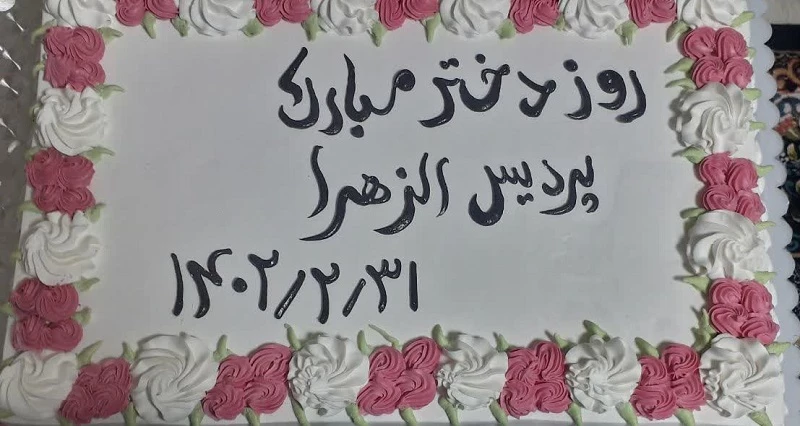 روز دختر مبارک
پردیس الزهرا
۱۴۰۲/۲/۳۱